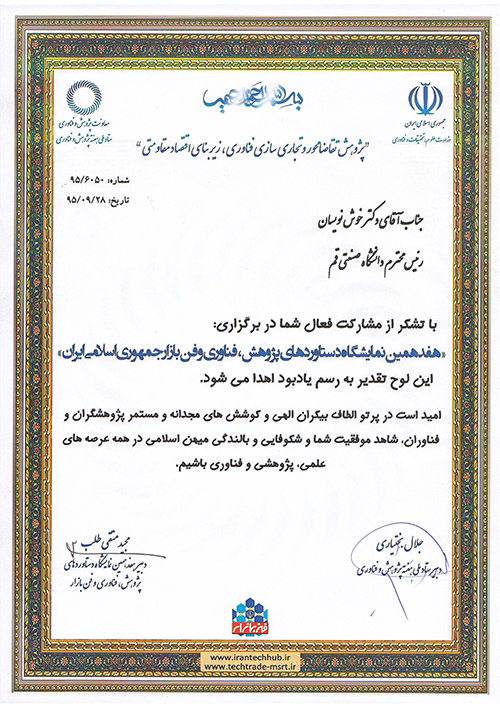 بسم الله الرحمن الرحیم
جمهوری اسلامی ایران
وزارت علوم، تحقیقات و فناوری
معاونت پژوهش و فناوری
ستاد ملی هفته پژوهش و فناوری
"پژوهش تقاضامحور و تجاری سازی فناوری، زیربنای اقتصاد مقاومتی"
شماره: ۹۵/۶۰۵۰
تاریخ: ۹۵/۰۹/۲۸
جناب آقای دکتر خوش نویسان
رئیس محترم دانشگاه صنعتی قم
با تشکر از مشارکت فعال شما در برگزاری:
«هفدهمین نمایشگاه دستاوردهای پژوهش، فناوری و فن بازار جمهوری اسلامی ایران»
این لوح تقدیر به رسم یادبود اهدا می شود.
امید است در پرتو الطاف بیکران الهی و کوشش های مجدانه و مستمر پژوهشگران و
فناوران، شاهد موفقیت شما و شکوفایی و بالندگی میهن اسلامی در همه عرصه های
علمی، پژوهشی و فناوری باشیم.
جلال بختیاری
دبیر ستاد ملی هفته پژوهش و فناوری
مجید متقی طلب
دبیر هفدهمین نمایشگاه دستاوردهای
پژوهش، فناوری و فن بازار
www.irantechhub.ir
www.techtrade-msrt.ir